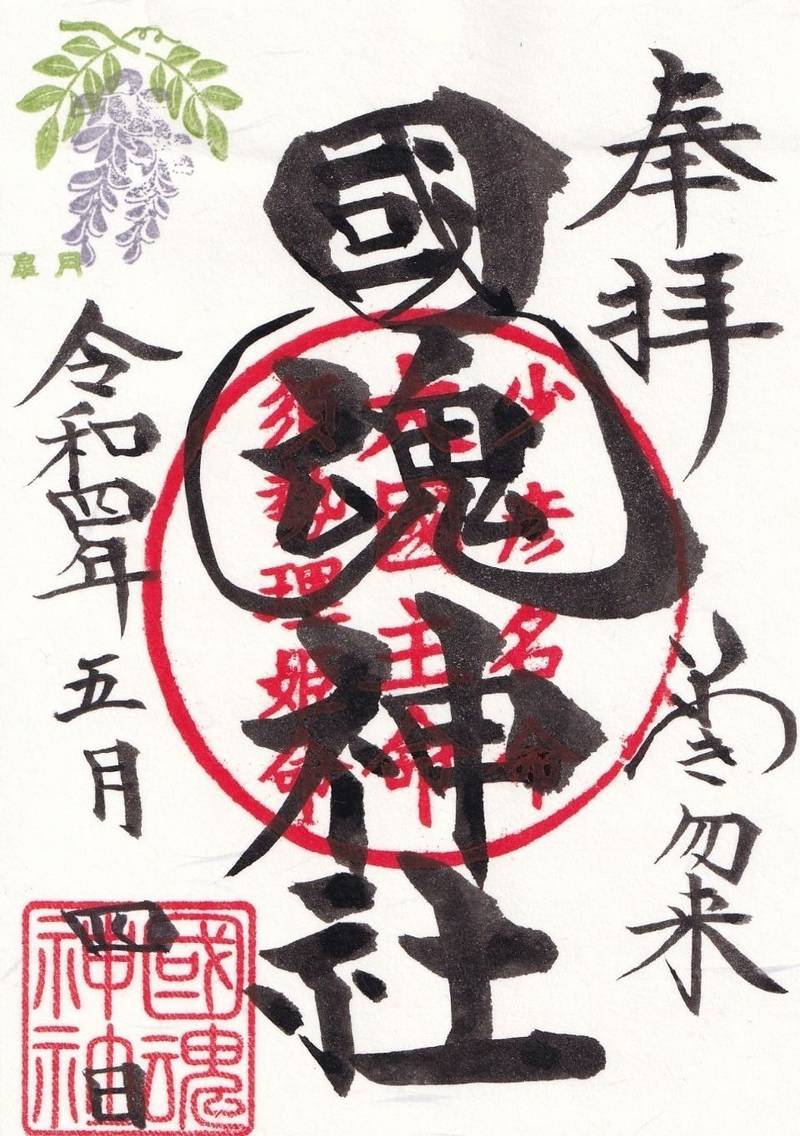 奉拝
いわき勿来
國魂神社
少彦名命
大國主命
須勢理姫命
皐月
令和四年五月四日
國魂
神社